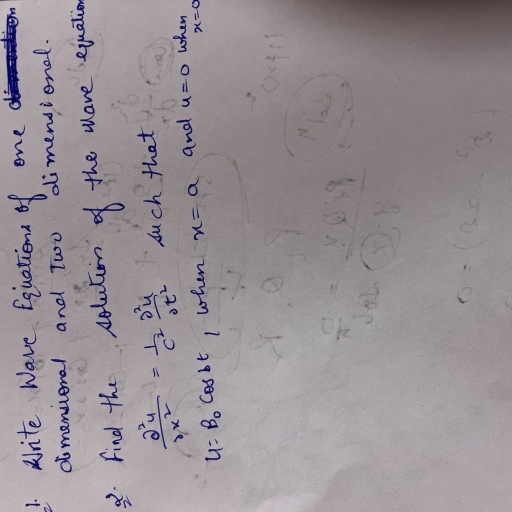 1. Write Wave Equations of one
dimensional and Two dimensional.
2. Find the solution of the wave equation
∂²u/∂x² = 1/c² ∂²u/∂t² such that
u = B₀ cos bt, when x = a and u = 0 when x = 0